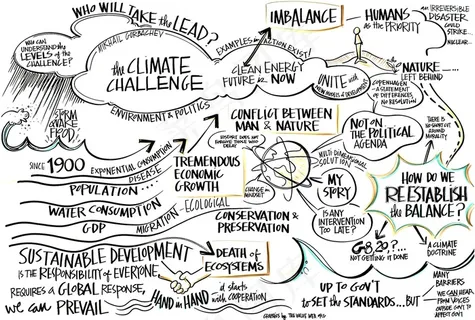 WHO WILL TAKE the LEAD?
MIKHAIL GORBACHEV
WHO CAN
UNDERSTAND the
LEVELS of the
CHALLENGE?
the CLIMATE
CHALLENGE
ENVIRONMENT & POLITICS
EXAMPLES in ACTION EXIST!
CLEAN ENERGY
FUTURE is NOW
IMBALANCE
HUMANS
as the PRIORITY
AN IRREVERSIBLE
DISASTER
COULD
STRIKE...
NUCLEAR...
NATURE
LEFT BEHIND
UNITE with
NEW MODELS of DEVELOPMENT
COPENHAGEN
A STATEMENT
of DIFFERENCES,
NO RESOLUTION
CONFLICT BETWEEN
MAN & NATURE
HISTORY DOES not
FORGIVE THOSE WHO
DELAY
NOT on the
POLITICAL
AGENDA
THERE IS
NO SHORT CUT
AROUND
MORALITY
SINCE 1900
EXPONENTIAL CONSUMPTION
DISEASE
POPULATION...
WATER CONSUMPTION
GDP
MIGRATION - ECOLOGICAL
TREMENDOUS
ECONOMIC
GROWTH
CHANGE in
MINDSET
MULTI DIMENSIONAL
SOLUTION
MY
STORY
IS ANY
INTERVENTION
TOO LATE?
HOW DO WE
REESTABLISH
the BALANCE?
CONSERVATION &
PRESERVATION
G8,20,?...
NOT GETTING it DONE
A CLIMATE
DOCTRINE
SUSTAINABLE DEVELOPMENT
IS the RESPONSIBILITY of EVERYONE,
REQUIRES a GLOBAL RESPONSE,
we can PREVAIL
DEATH of
ECOSYSTEMS
HAND in HAND
it starts
with COOPERATION
UP TO GOV'T
to SET the STANDARDS...BUT
MANY
BARRIERS
WE CAN HEAR
from VOICES
OUTSIDE GOV'T
to AFFECT GOV'T